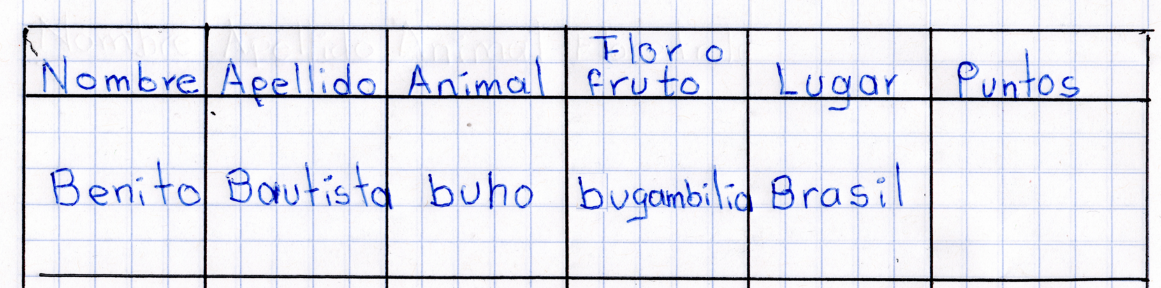 Nombre Apellido Animal Flor o fruto Lugar Puntos
Benito Bautista buho bugambilia Brasil